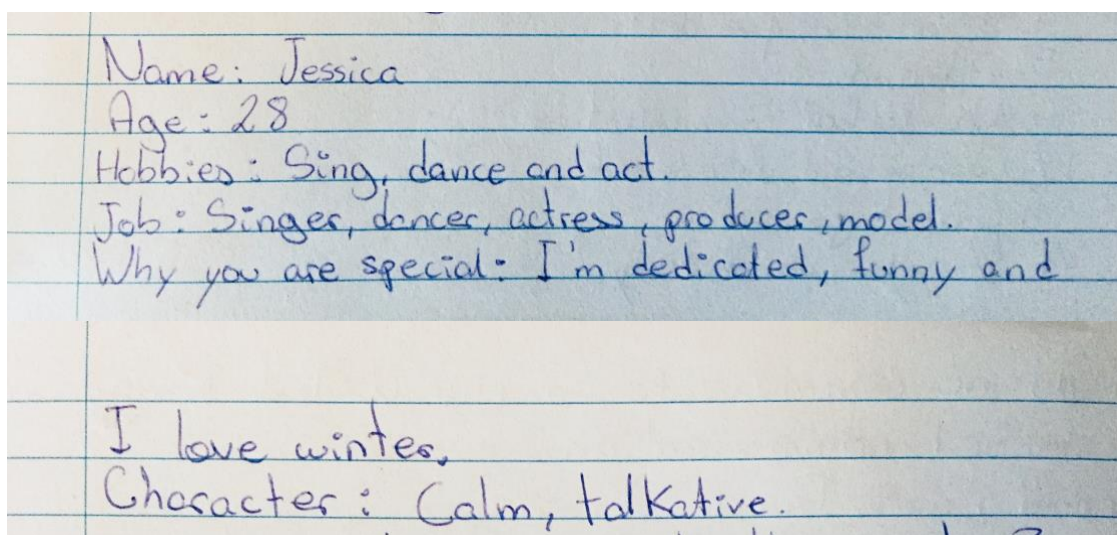 Name: Jessica
Age: 28
Hobbies: Sing, dance and act.
Job: Singer, dancer, actress, producer, model.
Why you are special: I'm dedicated, funny and
I love winter.
Character: Calm, talkative.